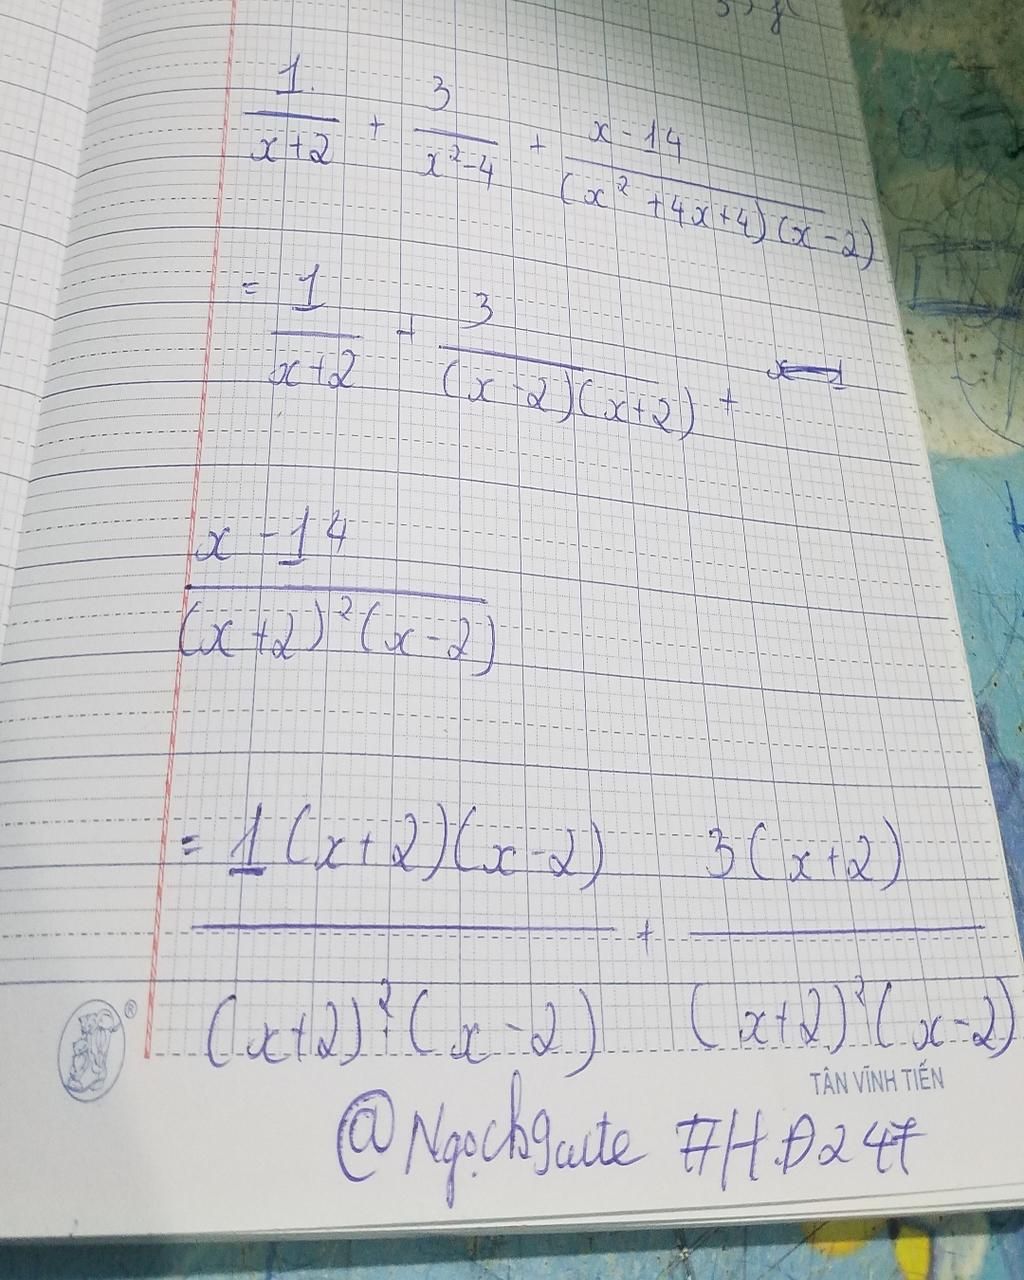 1/(x+2) + 3/(x²-4) + (x-14)/((x²+4x+4)(x-2))
= 1/(x+2) + 3/((x-2)(x+2)) +
(x-14)/((x+2)²(x-2))
= 1(x+2)(x-2)/((x+2)²(x-2)) + 3(x+2)/((x+2)²(x-2))
®
TÂN VĨNH TIẾN
@Ngochgaute #H.D247